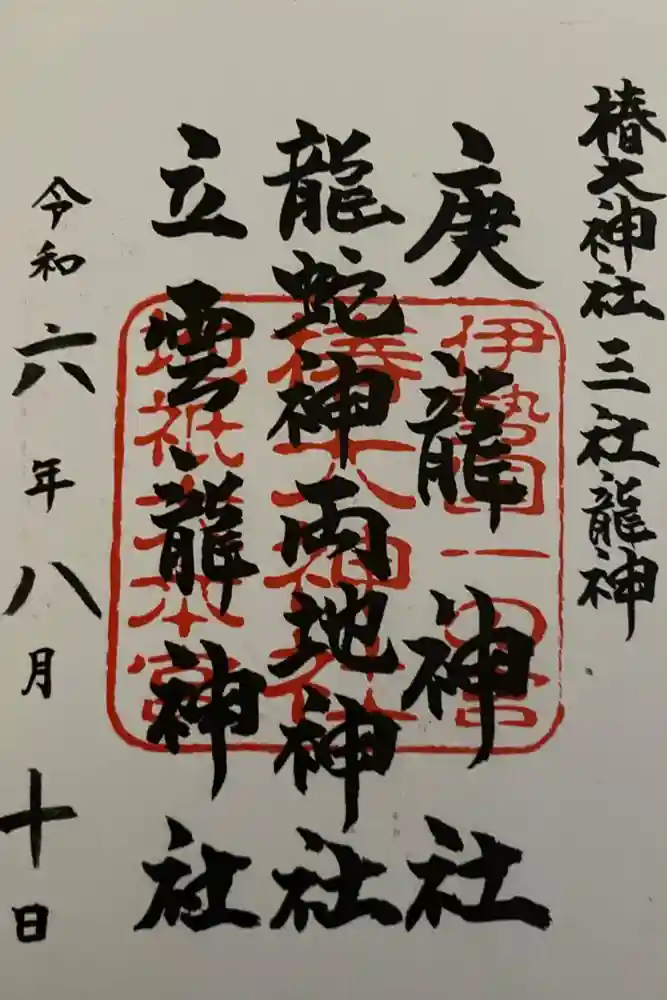 椿大神社三社龍神
庚龍神社
龍蛇神両地神社
立雲龍神社
令和六年八月十日
伊勢国一の宮
椿大神社
地祇大本宮